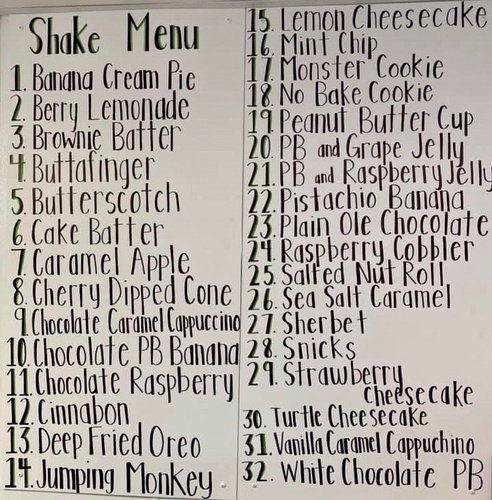 Shake Menu
1. Banana Cream Pie
2. Berry Lemonade
3. Brownie Batter
4. Buttafinger
5. Butterscotch
6. Cake Batter
7. Caramel Apple
8. Cherry Dipped Cone
9. Chocolate Caramel Cappuccino
10. Chocolate PB Banana
11. Chocolate Raspberry
12. Cinnabon
13. Deep Fried Oreo
14. Jumping Monkey
15. Lemon Cheesecake
16. Mint Chip
17. Monster Cookie
18. No Bake Cookie
19. Peanut Butter Cup
20. PB and Grape Jelly
21. PB and Raspberry Jelly
22. Pistachio Banana
23. Plain Ole Chocolate
24. Raspberry Cobbler
25. Salted Nut Roll
26. Sea Salt Caramel
27. Sherbet
28. Snicks
29. Strawberry
cheesecake
30. Turtle Cheesecake
31. Vanilla Caramel Cappuchino
32. White Chocolate PB